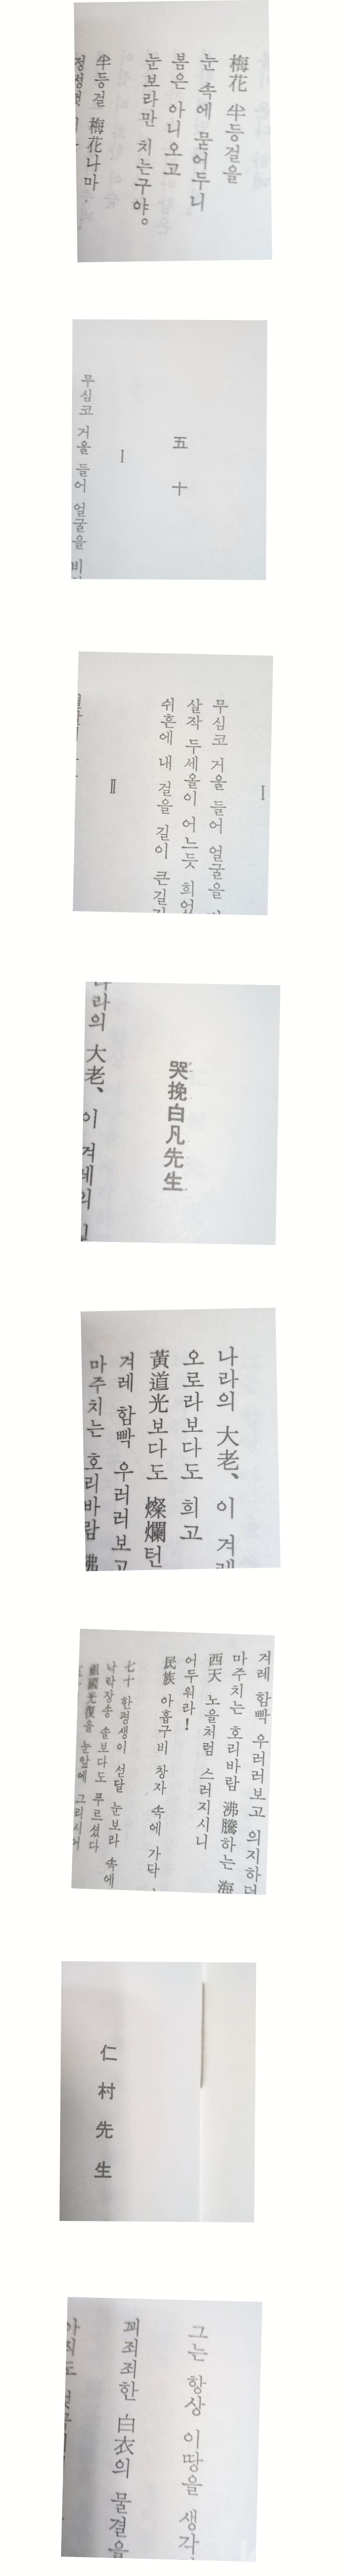 梅花 半등걸을
눈 속에 묻어두니
봄은 아니 오고
눈보라만 치는구양
半등걸 梅花나마
五十
I
무심코 거울 들어 얼굴을
I
무심코 거울 들어 얼굴을
살작 두세올이 어느듯 희었
쉬흔에 내 걸을 길이 큰길
II
哭挽白凡先生
나라의 大老、 이 겨레의
나라의 大老、 이 겨레
오로라보다도 희고
黃道光보다도 燦爛턴
겨레 함빡 우러러보고
마주치는 호리바람 沸
겨레 함빡 우러러보고 의지하더
마주치는 호리바람 沸騰하는 海
西天 노을처럼 스러지시니
어두워라!
民族 아홉구비 창자 속에 가닥
七十 한평생이 섣달 눈보라 속에
낙락장송 솔보다도 푸르셨다
祖國光復을 눈앞에 그리시어
仁村先生
그는 항상 이땅을 생각
꾀죄죄한 白衣의 물결을